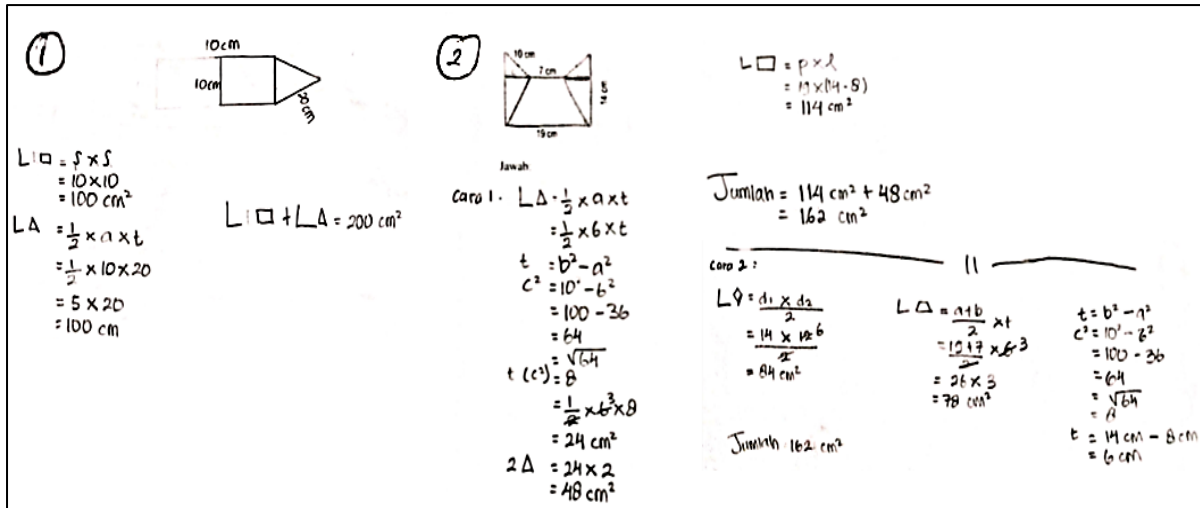 1
10cm
10cm
20cm
L□ = s × s
= 10 × 10
= 100 cm²
LΔ = 1/2 × a × t
= 1/2 × 10 × 20
= 5 × 20
= 100 cm
L□ + LΔ = 200 cm²
2
10 cm
7 cm
19 cm
Jawab
Cara 1. LΔ = 1/2 × a × t
= 1/2 × 6 × t
t = b² - a²
c² = 10² - 6²
= 100 - 36
= 64
= √64
t (c²) = 8
= 1/2 × 6 3 × 8
= 24 cm²
2Δ = 24 × 2
= 48 cm²
L□ = p × l
= 19 × (14 - 8)
= 114 cm²
Jumlah = 114 cm² + 48 cm²
= 162 cm²
Cara 2 :
L◊ = d₁ × d₂ / 2
= 14 × 12 6 / 2
= 84 cm²
Jumlah 162 cm²
= a+b / 2 × t
= 19+7 / 2 × 6 3
= 26 × 3
= 78 cm²
t = b² - a²
c² = 10² - 6²
= 100 - 36
= 64
= √64
= 8
t = 14 cm - 8 cm
= 6 cm